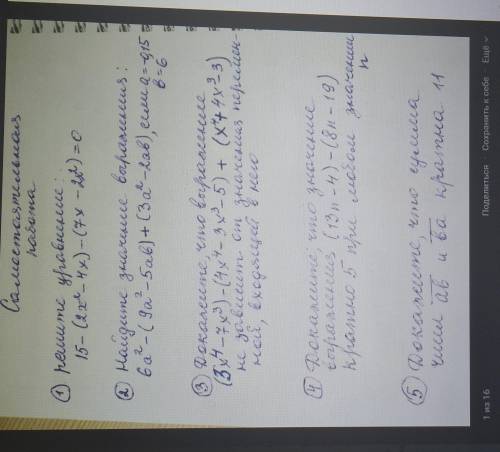 Самостоятельная
работа
① решите уравнение:
15 – (2x² – 4x) – (7x – 2x²) = 0
② Найдите значение выражения:
6a² – (9a² – 5ab) + (3a² – 2ab), если a = –0,15
b = 6
③ Докажите, что выражение
(3x⁴ – 7x³) – (4x⁴ – 3x³ – 5) + (x⁴ + 4x³ – 3)
не зависит от значения перемен-
ной, входящей в него
④ Докажите, что значение
выражения (13n – 4) – (8n – 19)
кратно 5 при любом значении
n
⑤ Докажите, что сумма
чисел ab и ba кратна 11
1 из 16
Поделиться Сохранить к себе Ещё